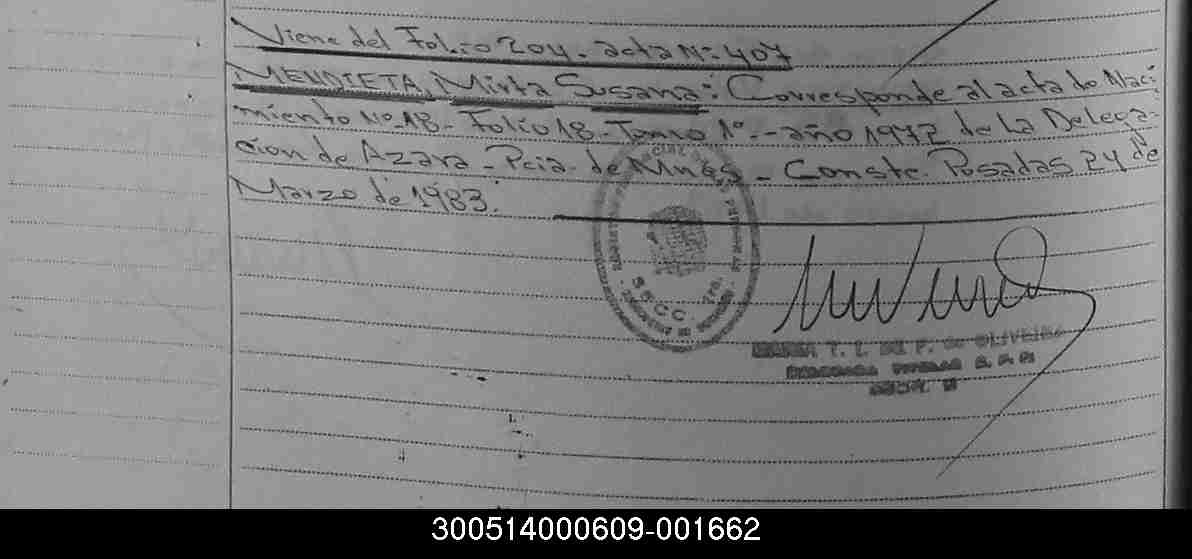 Viene del Folio 204. acta Nº 407
MENDIETA, Mirta Susana: Corresponde al acta de Naci-
miento Nº 18 - Folio 18 - Tomo 1º. - año 1972 de la Delega-
cion de Azara - Pcia. de Mnes - Conste. Posadas 24 de
Marzo de 1983.
SECC. 7a.
T. I. P. de OLIVEIRA
TITULAR
300514000609-001662